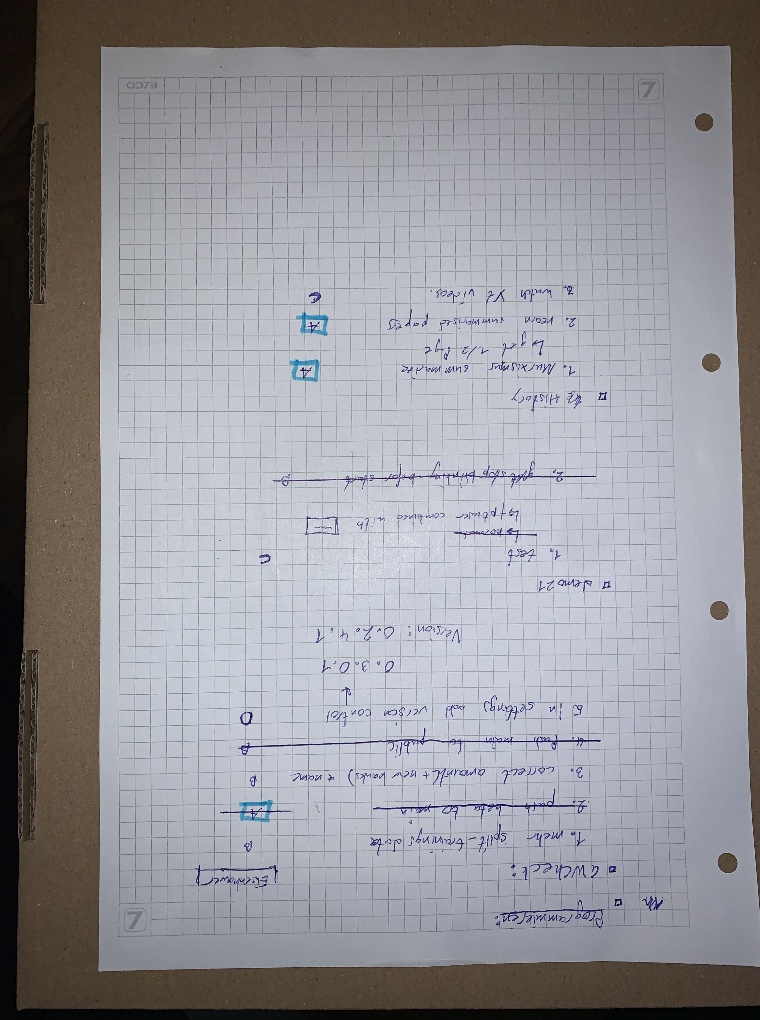 7
Programmieren:
GWCheck:
[Eisenhower]
1. mehr split-trainingsdata B
2. push beta to main A
3. correct amount (+ new banks) + name B
4. Push main to public B
5. in settings add version control D
↓
0.3.0.1
Version: 0.2.4.1
demo21
1. test C
↳ normal
↳ ptuser combined with
2. get stop blinking befor start D
History
1. Marxismus summarize A
↳ get 1/2 Pge
2. learn summarised papers A
3. watch Yt videos. C
7
ELCO